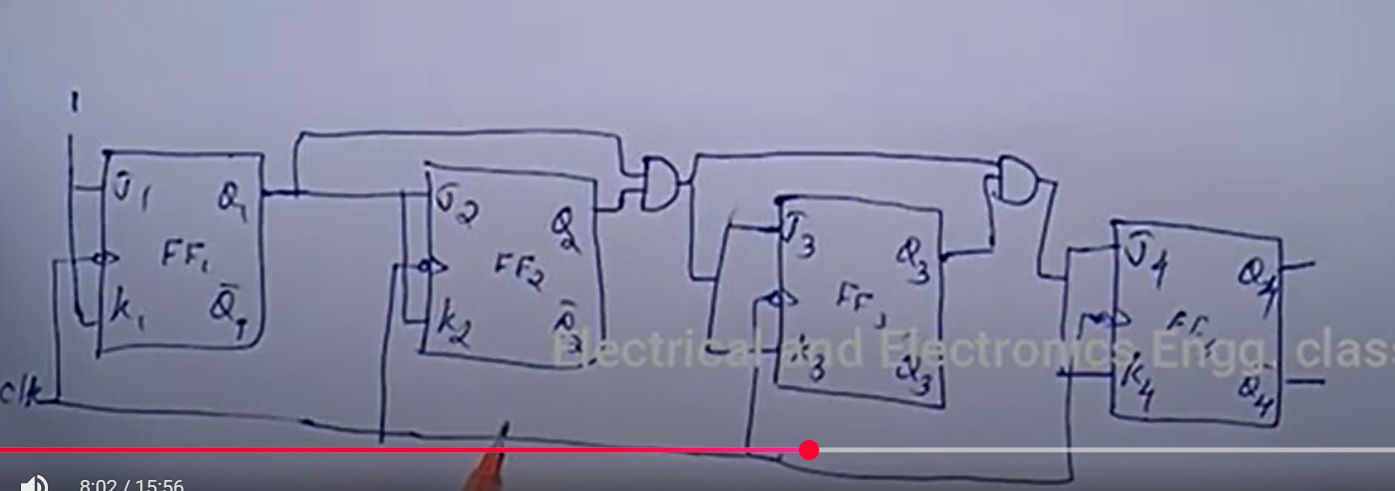 1
J1 Q1
FF1
K1 Q̄1
J2 Q2
FF2
K2
J3 Q3
FF3
K3 Q̄3
J4 Q4
K4 Q̄4
clk
Electrical and Electronics Engg. clas
8:02 / 15:56